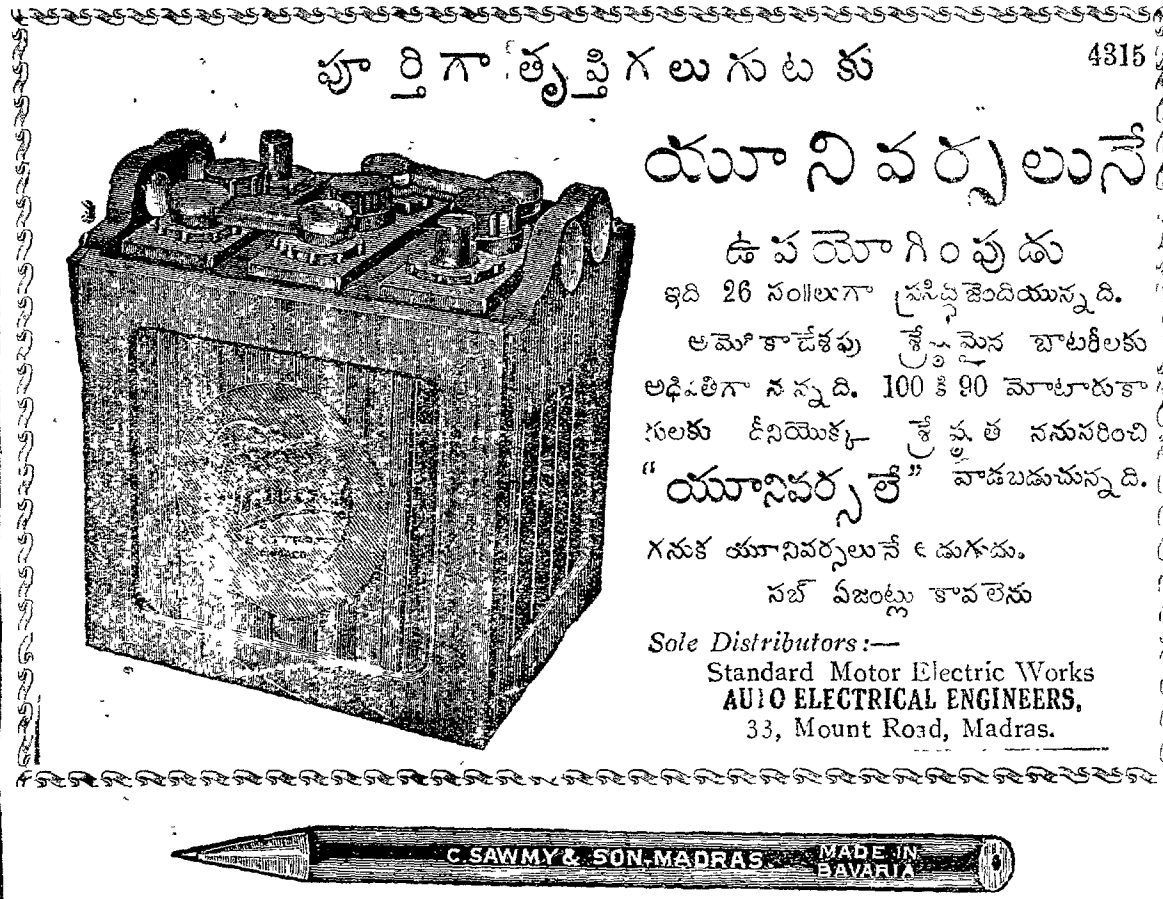 4315
పూర్తిగా తృప్తిగలుగుటకు
యూనివర్సలునే
ఉపయోగింపుడు
ఇది 26 సం॥లుగా ప్రసిద్ధిజెందియున్నది.
అమెరికాదేశపు శ్రేష్ఠమైన బాటరీలకు
అధిపతిగా నున్నది. 100 కి 90 మోటారుకా
రులకు దీనియొక్క శ్రేష్ఠత ననుసరించి
“యూనివర్సలే” వాడబడుచున్నది.
గనుక యూనివర్సలునే అడుగుడు.
సబ్ ఏజంట్లు కావలెను
Sole Distributors:—
Standard Motor Electric Works
AUTO ELECTRICAL ENGINEERS,
33, Mount Road, Madras.
C. SAWMY & SON-MADRAS MADE IN
BAVARIA